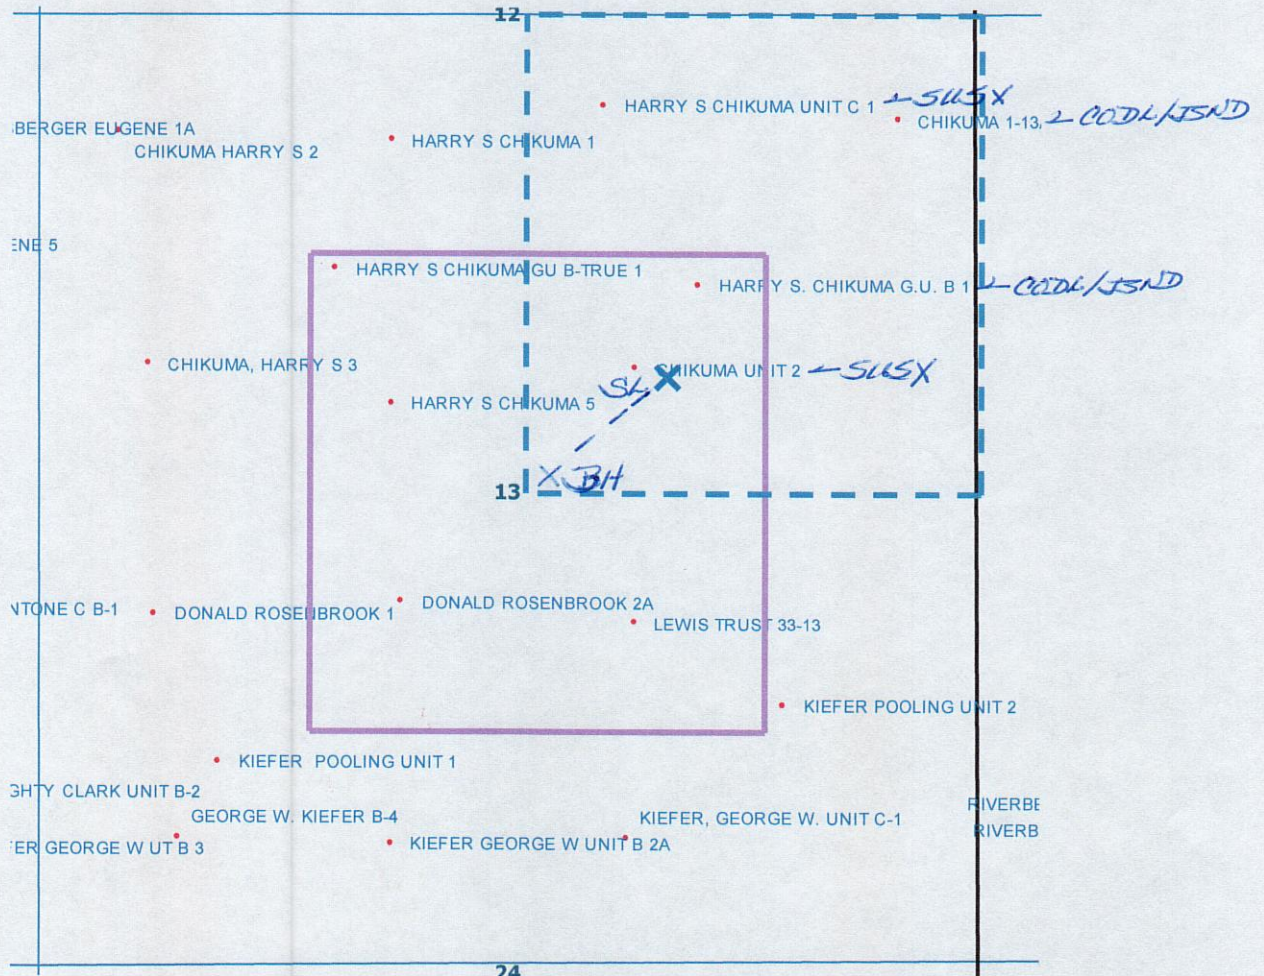 12
HARRY S CHIKUMA UNIT C 1 ← SUSX
CHIKUMA 1-13 ← CODL/JSND
SBERGER EUGENE 1A
CHIKUMA HARRY S 2
HARRY S CHIKUMA 1
ENE 5
HARRY S CHIKUMA GU B-TRUE 1
HARRY S. CHIKUMA G.U. B 1 ← CODL/JSND
CHIKUMA, HARRY S 3
CHIKUMA UNIT 2 ← SUSX
SL X
HARRY S CHIKUMA 5
X BH
13
NTONE C B-1
DONALD ROSENBROOK 1
DONALD ROSENBROOK 2A
LEWIS TRUST 33-13
KIEFER POOLING UNIT 2
KIEFER POOLING UNIT 1
GHTY CLARK UNIT B-2
GEORGE W. KIEFER B-4
KIEFER, GEORGE W. UNIT C-1
RIVERBE
RIVERB
FER GEORGE W UT B 3
KIEFER GEORGE W UNIT B 2A
24